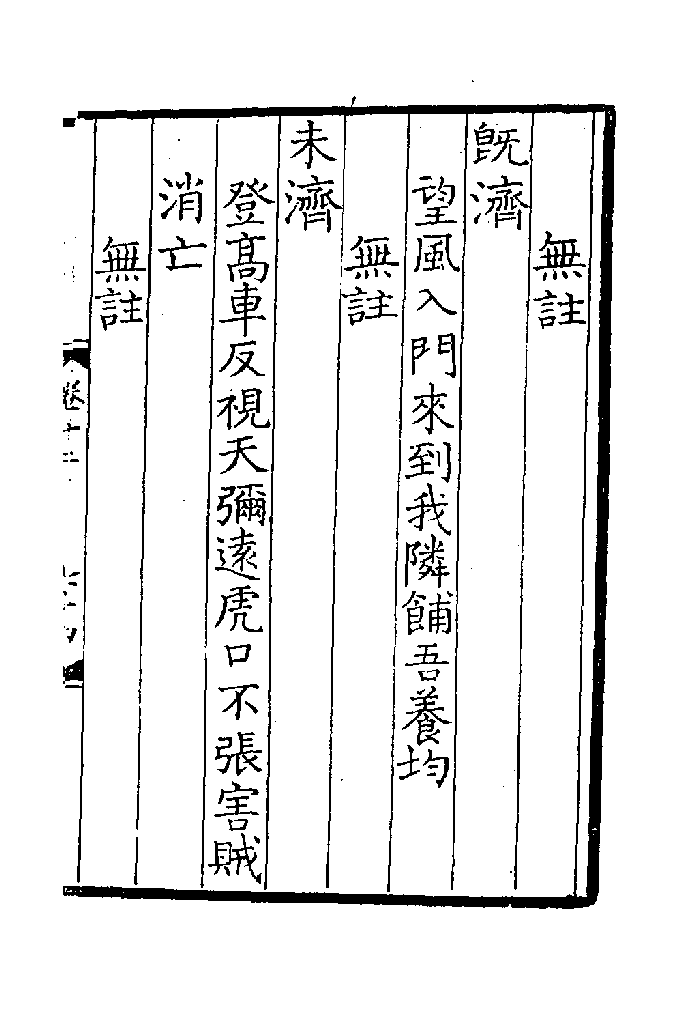 無註
既濟
望風入門來到我隣餔吾養均
無註
未濟
登高車反視天彌遠虎口不張害賊
消亡
無註
卷十二